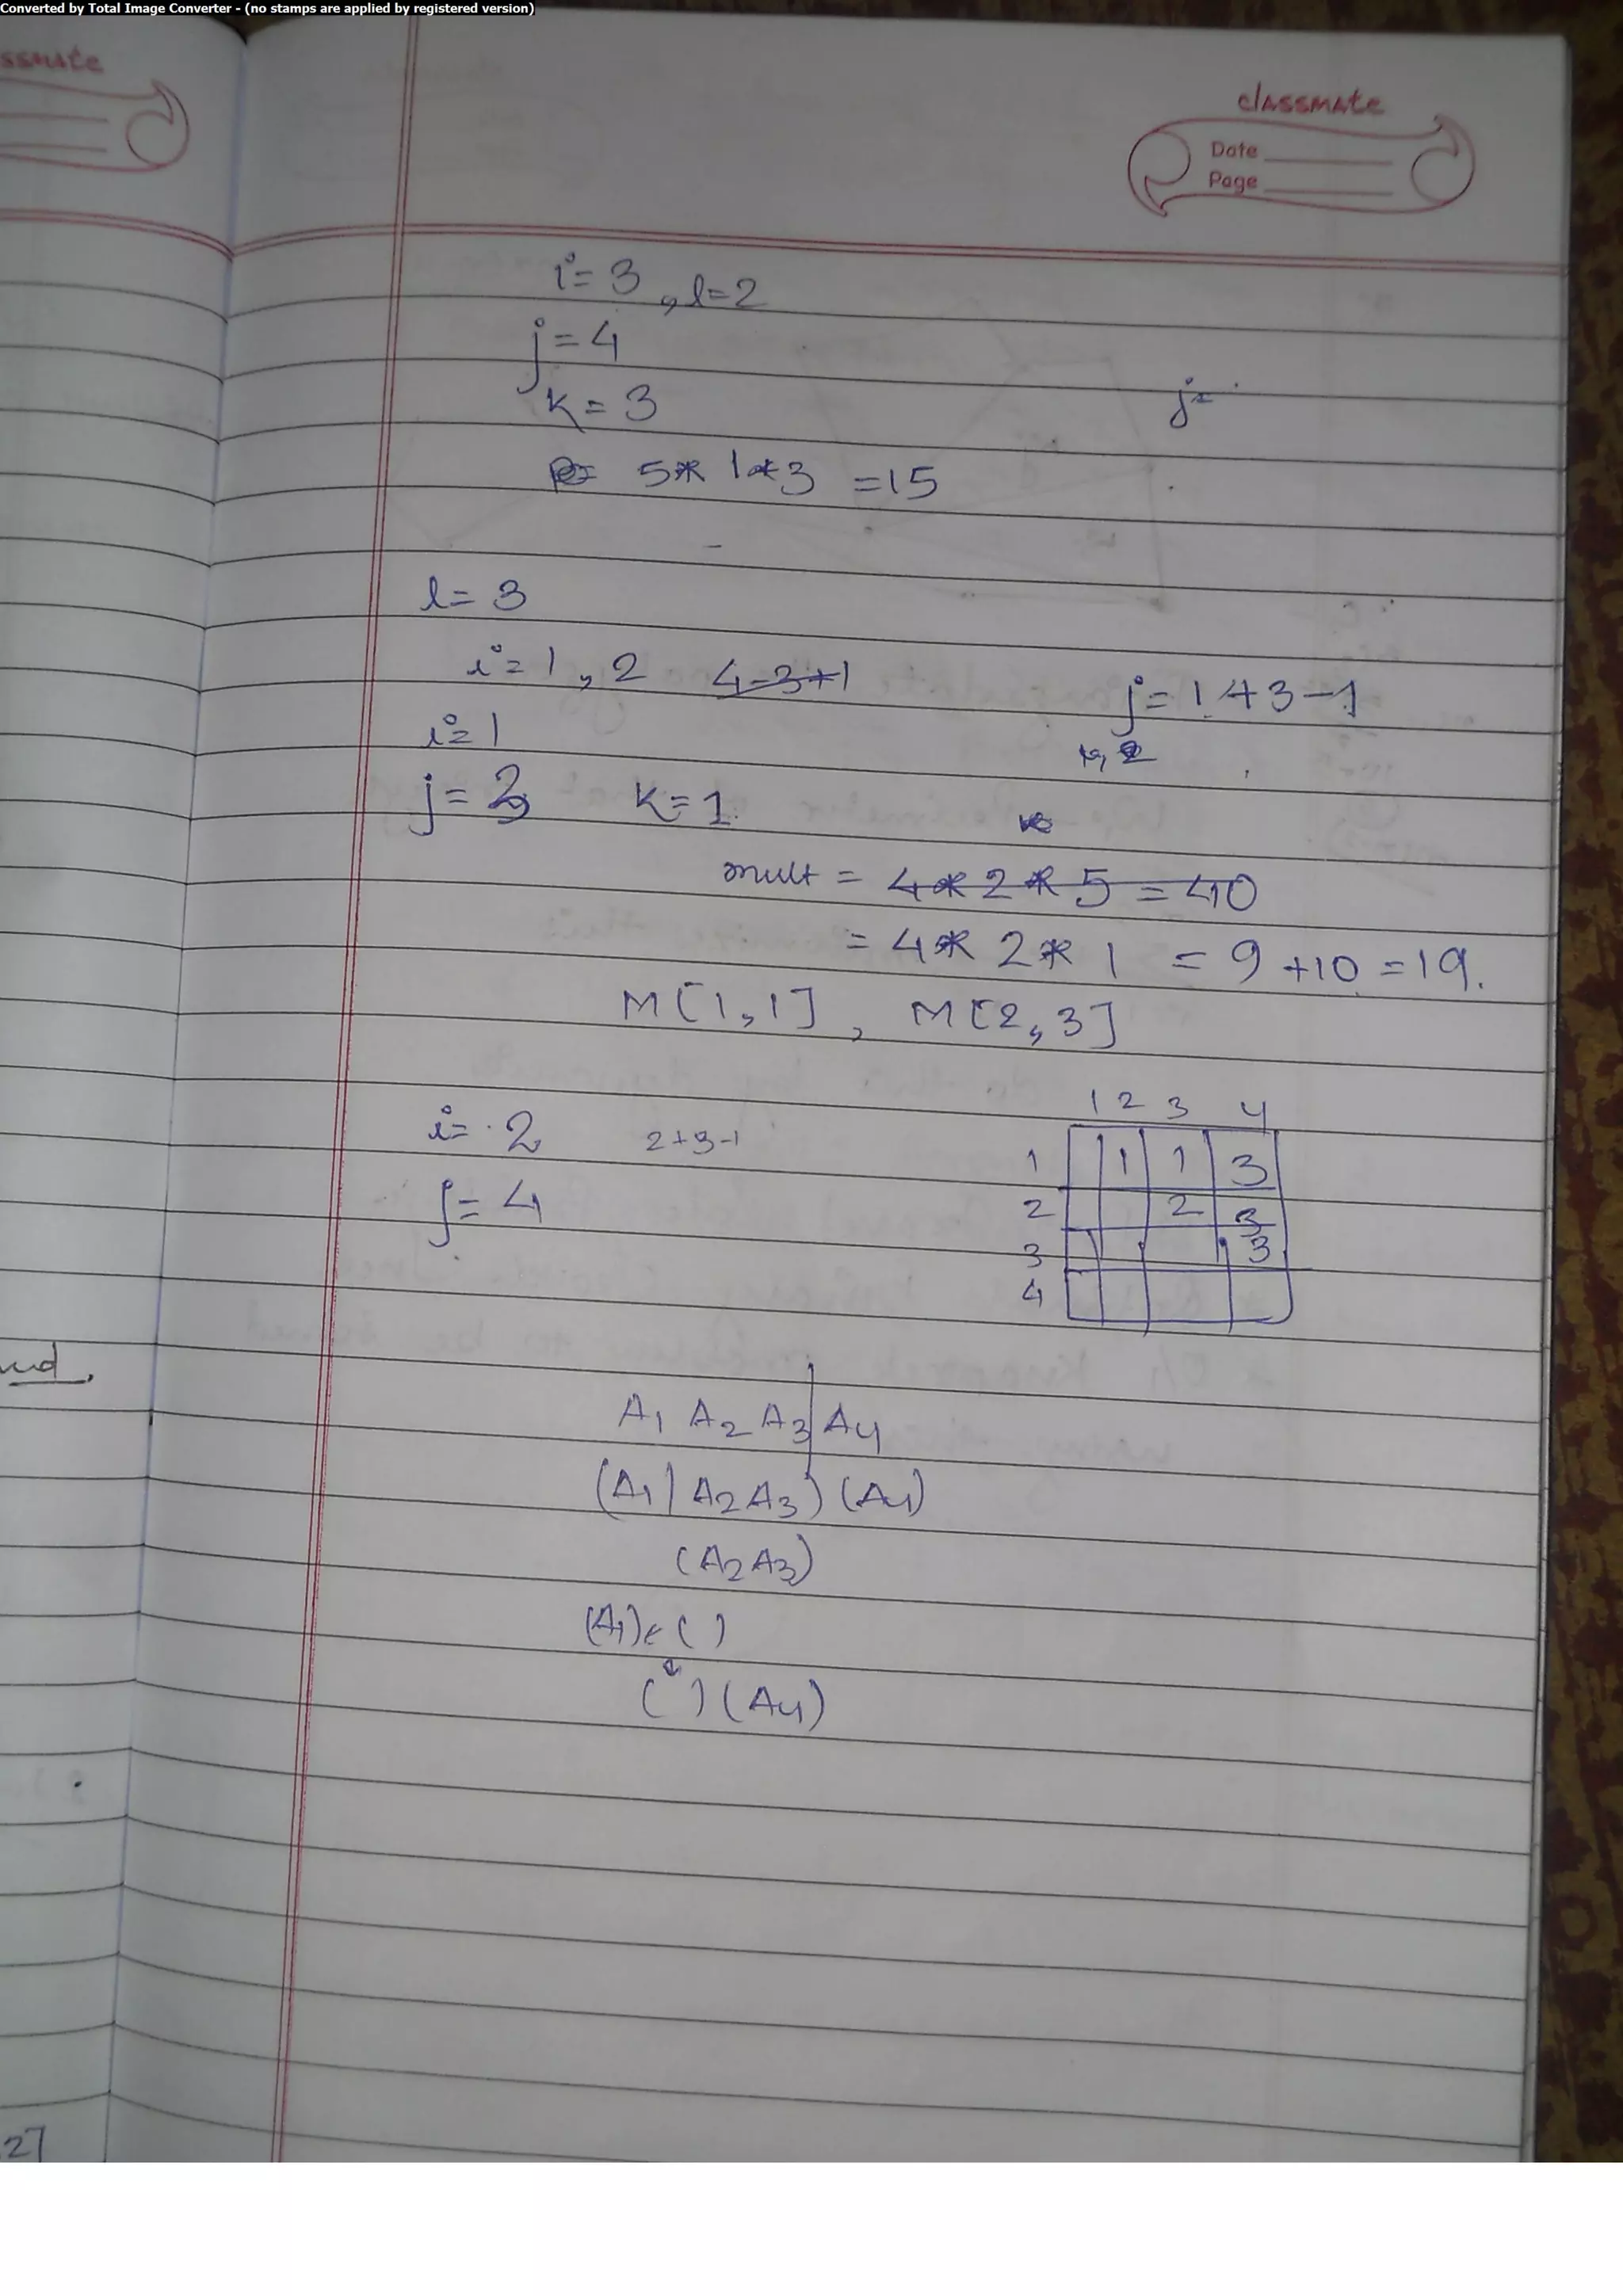 Converted by Total Image Converter - (no stamps are applied by registered version)
ssmate
classmate
Date
Page
i = 3 , l = 2
j = 4
j =
K = 3
5 * 1 * 3 = 15
l = 3
i = 1 , 2 4-3+1 j = 1 + 3 - 1
i = 1
j = 3 K = 1
mult = 4 * 2 * 5 = 40
= 4 * 2 * 1 = 9 + 10 = 19.
M[1,1] , M[2,3]
1 2 3 4
i = 2 2+3-1
1 1 1 3
j = 4
2 2 3
3 3
4
und.
A1 A2 A3 | A4
(A1 | A2 A3) (A4)
(A2 A3)
(A1) ( )
( ) (A4)
27